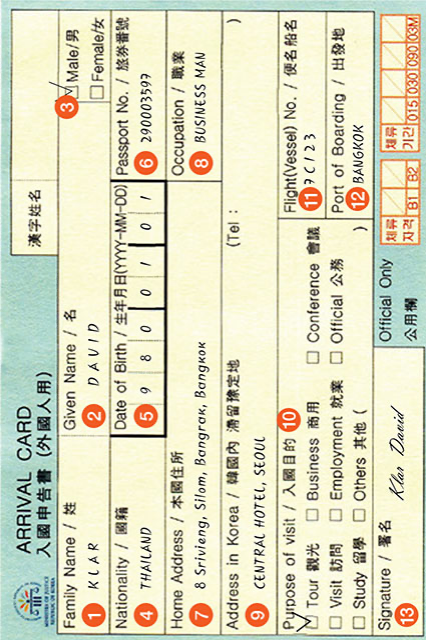 MINISTRY OF JUSTICE
REPUBLIC OF KOREA
ARRIVAL CARD
入國申告書 (外國人用)
漢字姓名
Family Name / 姓
1 KLAR
Given Name / 名
2 DAVID
3 Male/男
Female/女
Nationality / 國籍
4 THAILAND
Date of Birth / 生年月日(YYYY-MM-DD)
5 9 8 0 0 1 0 1
Passport No. / 旅券番號
6 290003599
Home Address / 本國住所
7 8 Srivieng, Silom, Bangrak, Bangkok
Occupation / 職業
8 BUSINESS MAN
Address in Korea / 韓國內 滯留豫定地
9 CENTRAL HOTEL, SEOUL
(Tel : )
Purpose of visit / 入國目的 10
Tour 觀光 Business 商用 Conference 會議
Visit 訪問 Employment 就業 Official 公務
Study 留學 Others 其他 ( )
Flight(Vessel) No. / 便名船名
11 7C123
Port of Boarding / 出發地
12 BANGKOK
Signature / 署名
13 Klar David
Official Only
公用欄
체류
자격 B1 B2
체류
기간 015 030 090 03M